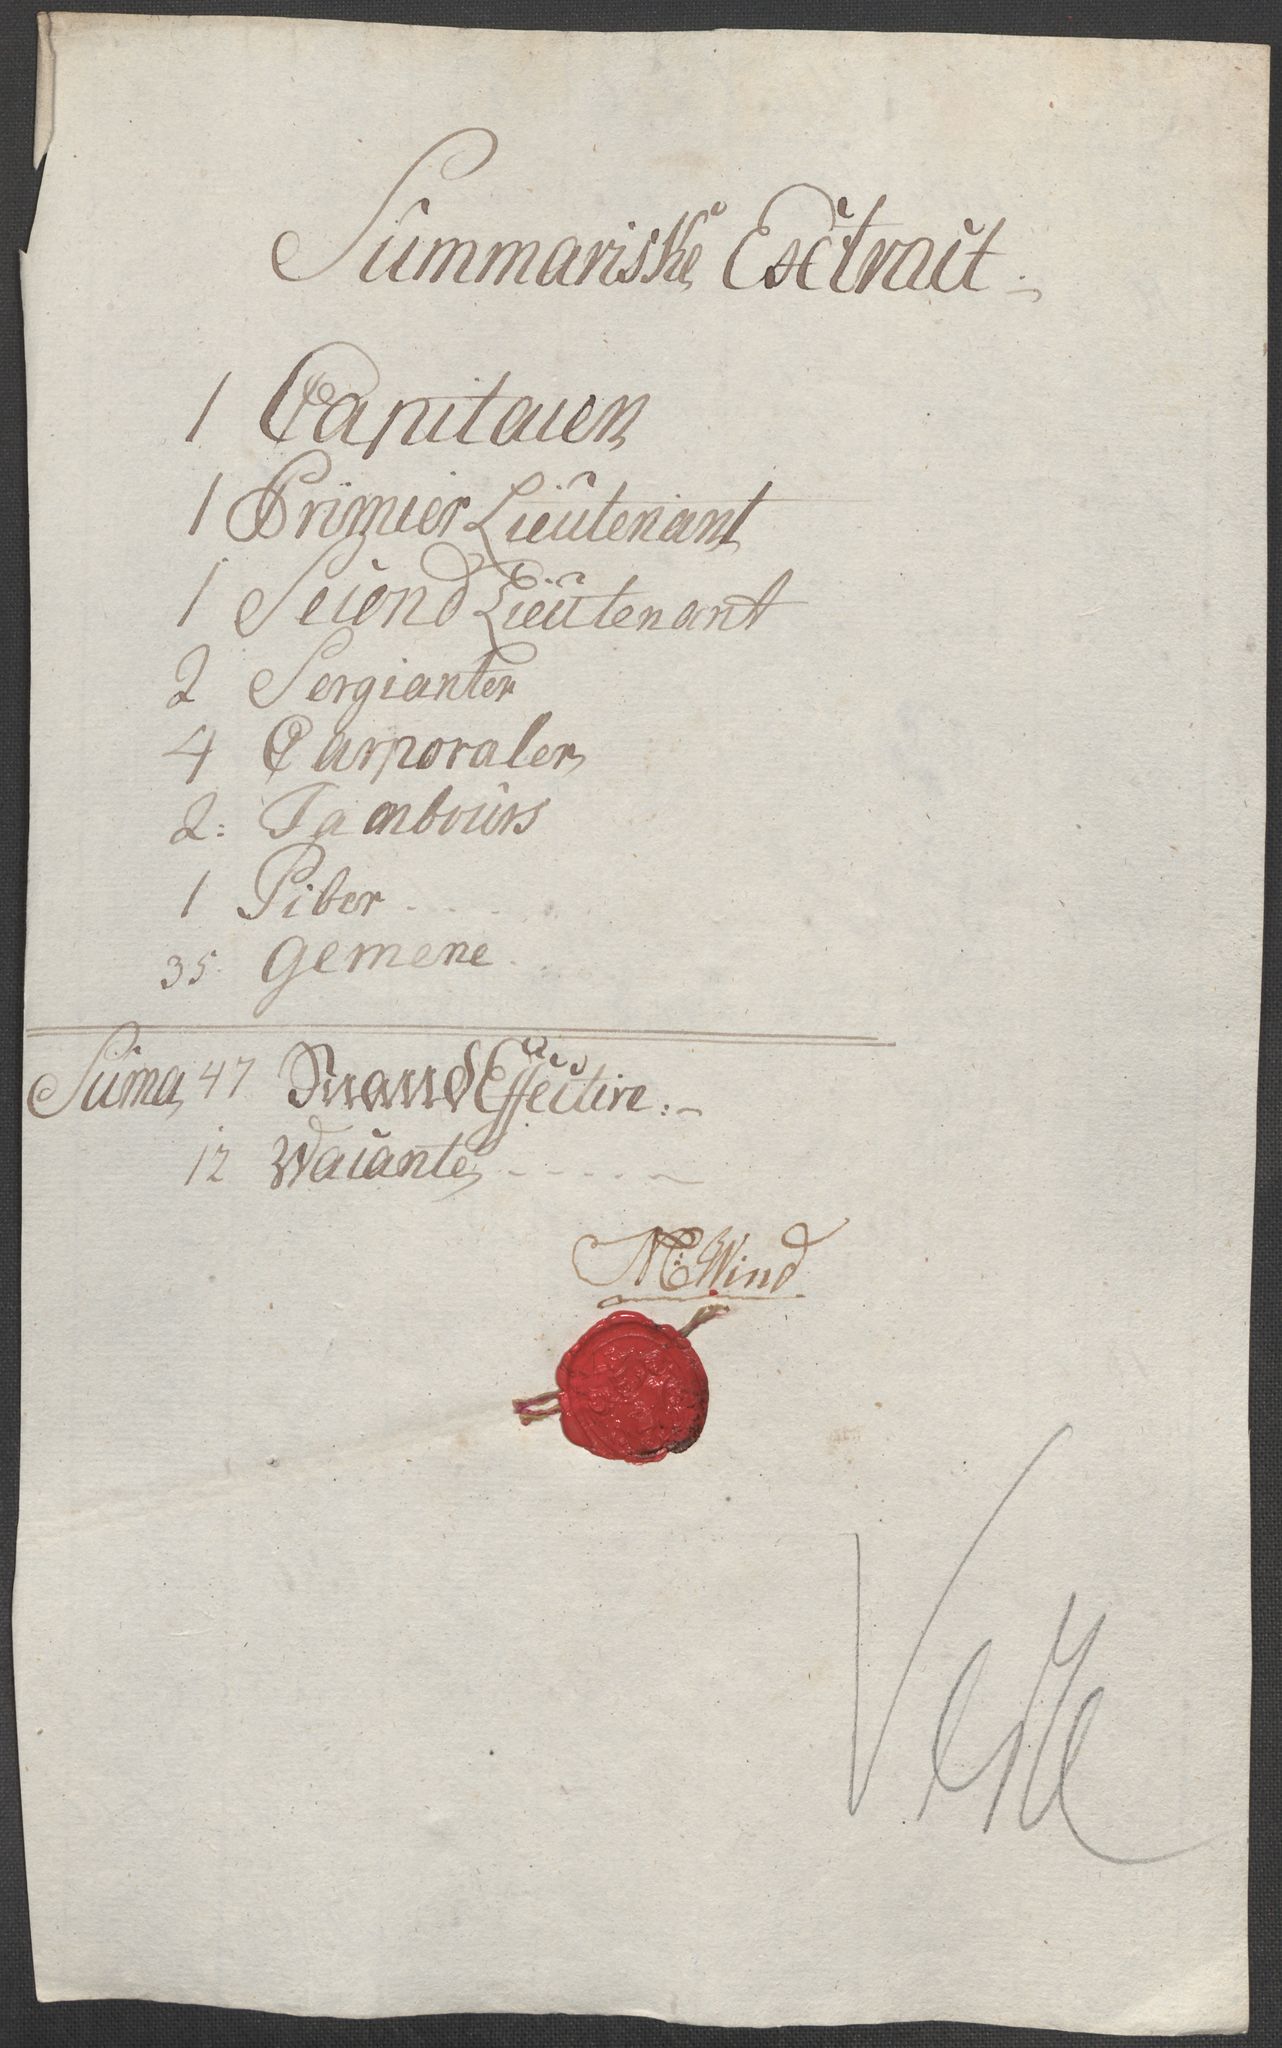 Summariske Exctrait
1 Capitaien
1 Primier Lieutenant
1 Second Lieutenant
2 Sergianter
4 Carporaler
2: Tambours
1 Piber
35 gemene
Suma 47 Mand Effective
12 Wacante
M: Wind